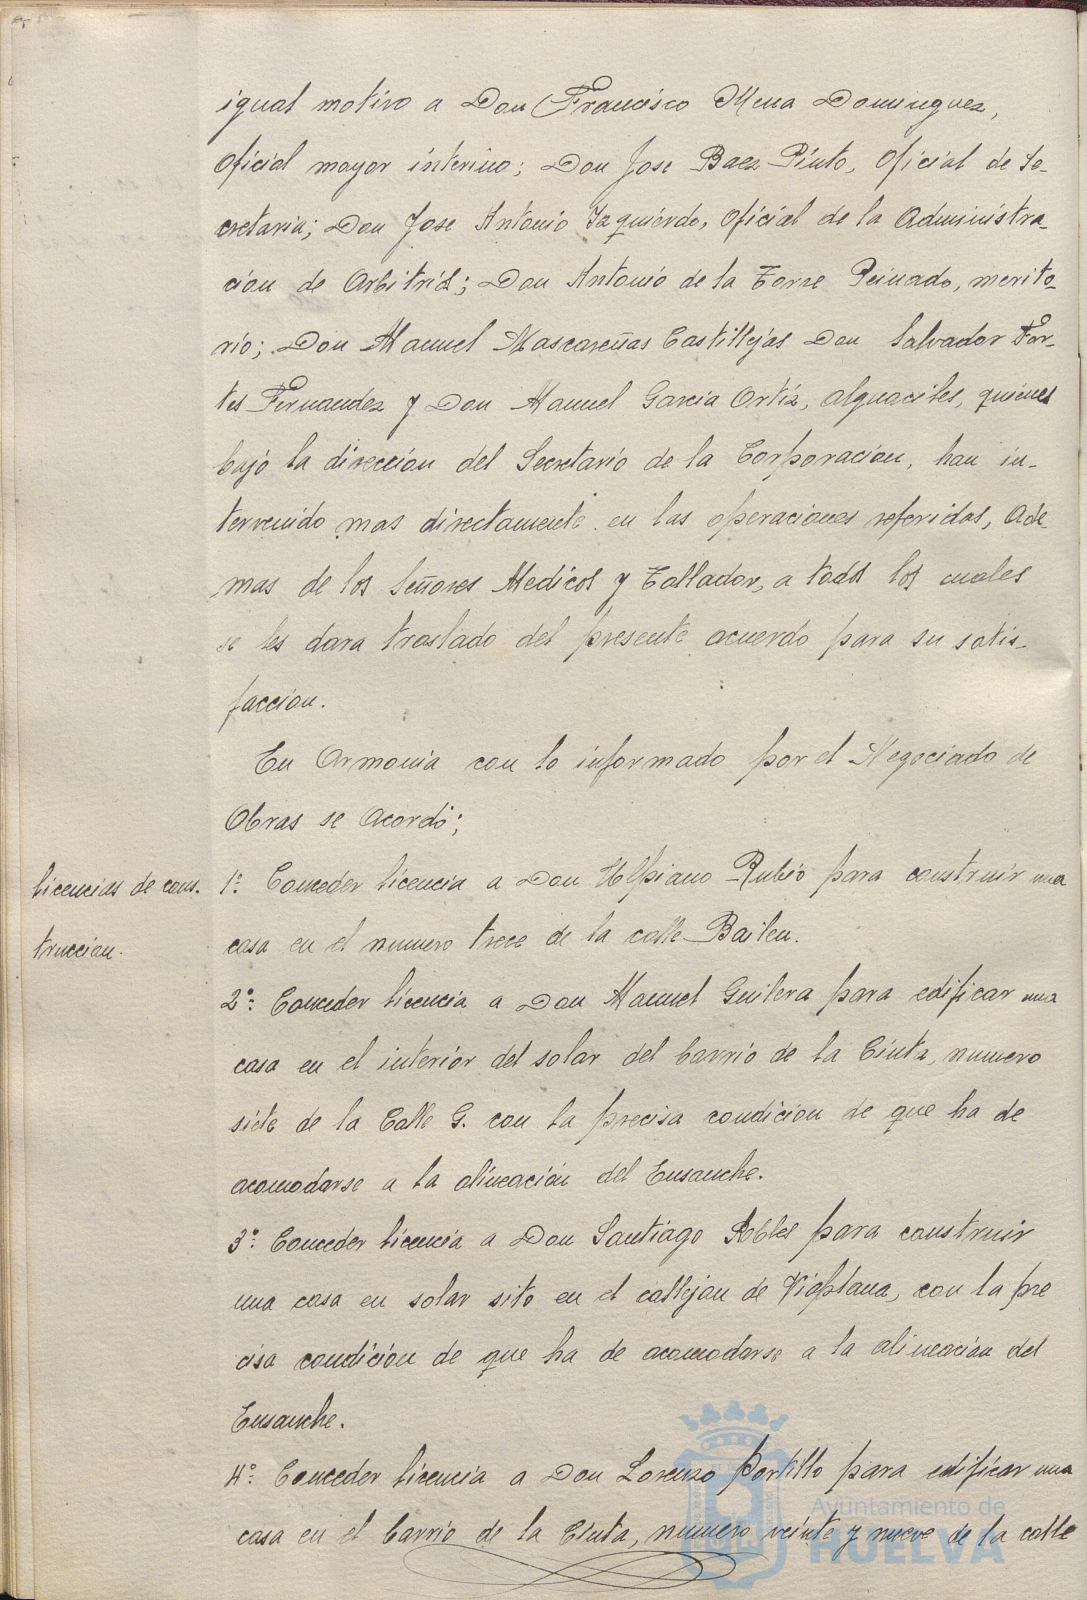 igual motivo a Don Francisco Mena Dominguez,
Oficial mayor interino; Don Jose Baez Pinto, Oficial de Se-
cretaria; Don Jose Antonio Izquierdo, Oficial de la Administra-
cion de Arbitrios; Don Antonio de la Torre Peinado, merito-
rio; Don Manuel Mascareñas Castillejos Don Salvador For-
tes Fernandez y Don Manuel Garcia Ortiz, alguaciles, quienes
bajo la direccion del Secretario de la Corporacion, han in-
tervenido mas directamente en las operaciones referidas, Ade-
mas de los Señores Medicos y Tallador, a todos los cuales
se les dara traslado del presente acuerdo para su satis-
faccion.
En Armonia con lo informado por el Negociado de
Obras se Acordó;
licencias de cons-
truccion.
1º Conceder licencia a Don Ulpiano Rubio para construir una
casa en el numero trece de la calle Bailen.
2º: Conceder licencia a Don Manuel Guilera para edificar una
casa en el interior del solar del barrio de la Cinta, numero
siete de la Calle G. con la precisa condicion de que ha de
acomodarse a la alineación del Ensanche.
3º: Conceder licencia a Don Santiago Robles para construir
una casa en solar sito en el callejon de Viaplana, con la pre
cisa condición de que ha de acomodarse a la alineacion del
Ensanche.
4º: Conceder licencia a Don Lorenzo Portillo para edificar una
casa en el barrio de la Cinta, numero veinte y nueve de la calle
Ayuntamiento de
HUELVA